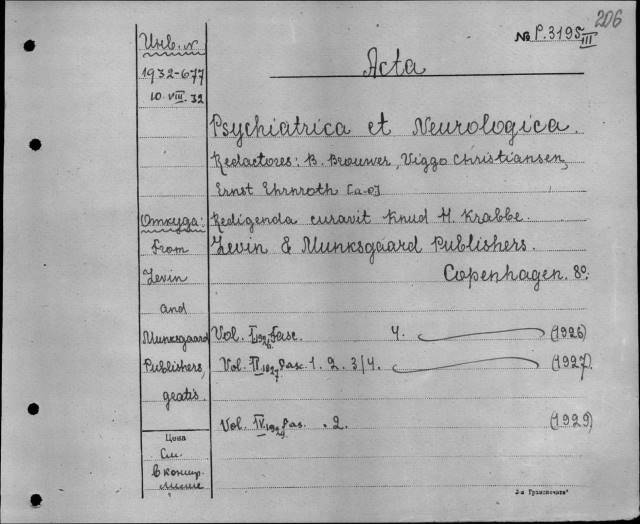 206
№ P.3195
III
Инв. №
1932-677
10.VIII.32
Acta
Psychiatrica et Neurologica.
Redactores: B. Brouwer, Viggo Christiansen,
Ernst Ehrnroth [a-o]
Откуда:
Redigenda curavit Knud H. Krabbe.
from
Levin & Munksgaard Publishers.
Levin
Copenhagen. 8°.
and
Munksgaard
Vol. I 1926 Fasc. 4. (1926)
Publishers,
Vol. II 1927 Fasc. 1. 2. 3/4. (1927)
gratis.
Vol. IV 1929 Fas. . 2. (1929)
Цена
См.
в конце